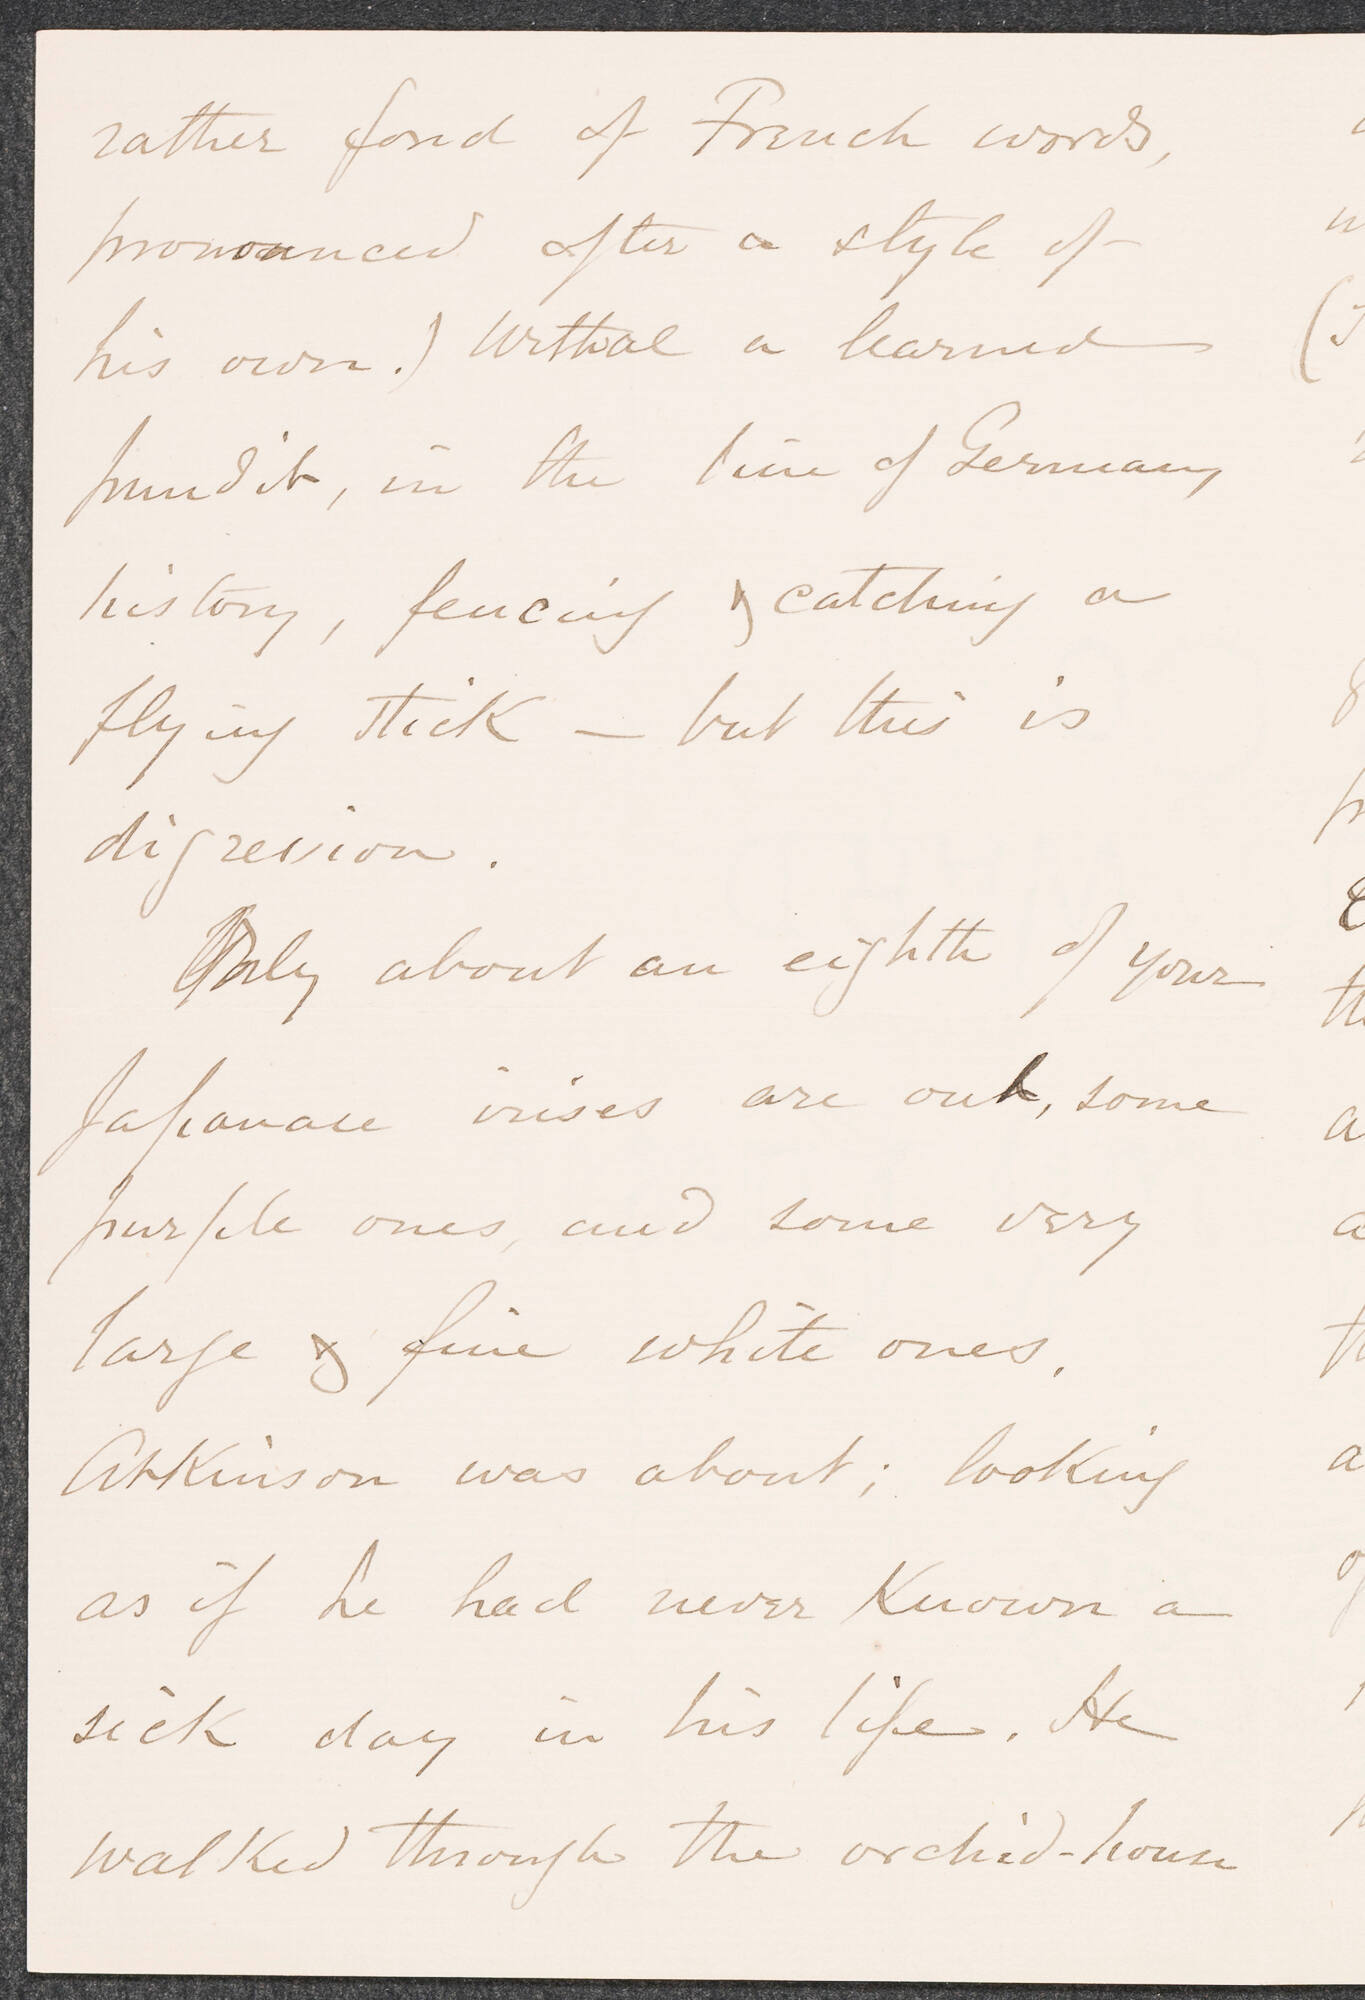 rather fond of French words,
pronounced after a style of
his own.) Withal a learned
pundit, in the line of Germany
history, fencing & catching a
flying stick – but this is
digression.
Only about an eighth of your
Japanese irises are out, some
purple ones, and some very
large & fine white ones.
Atkinson was about; looking
as if he had never known a
sick day in his life. He
walked through the orchid-house